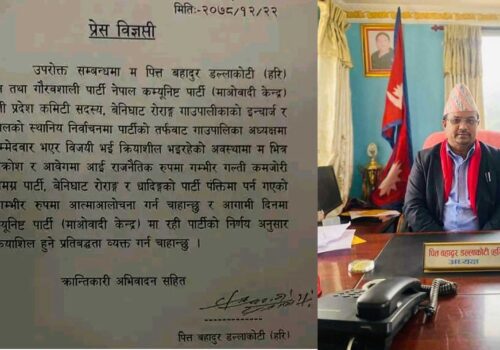 मिति:-२०७८/१२/२२
प्रेस विज्ञप्ती
उपरोक्त सम्वन्धमा म पित्त बहादुर डल्लाकोटी (हरि)
तथा गौरवशाली पार्टी नेपाल कम्युनिष्ट पार्टी (माओवादी केन्द्र)
प्रदेश कमिटी सदस्य, बेनिघाट रोराङ्ग गाउपालीकाको इन्चार्ज र
स्थानिय निर्वाचनमा पार्टीको तर्फवाट गाउपालिका अध्यक्षमा
भएर विजयी भई क्रियाशील भइरहेको अवस्थामा म भित्र
र आवेगमा आई राजनैतिक रुपमा गम्भीर गल्ती कमजोरी
पार्टी, बेनिघाट रोराङ्ग र धादिङ्गको पार्टी पंक्तिमा पर्न गएको
रुपमा आत्माआलोचना गर्न चाहान्छु र आगामी दिनमा
पार्टी (माओवादी केन्द्र) मा रही पार्टीको निर्णय अनुसार
हुने प्रतिबद्धता व्यक्त गर्न चाहान्छु ।
क्रान्तिकारी अभिवादन सहित
पित्त बहादुर डल्लाकोटी (हरि)
पित्त बहादुर डल्लाकोटी (हरि)
अध्यक्ष